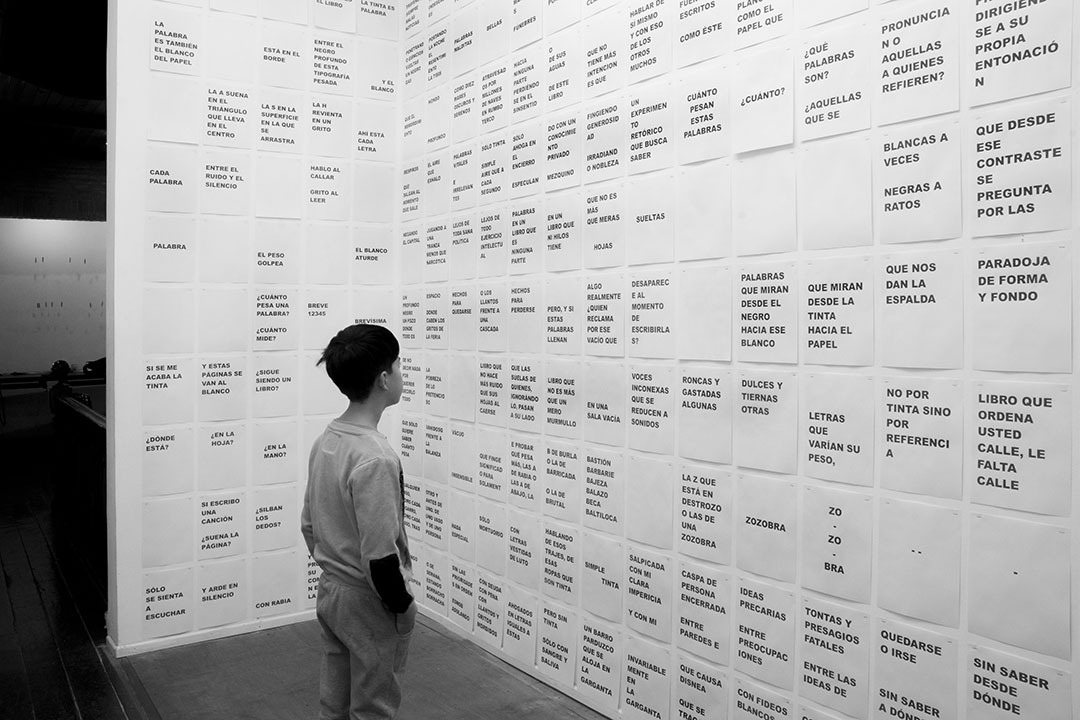 EL LIBRO
LA TINTA ES
PALABRA
LA
PALABRA
ES TAMBIÉN
EL BLANCO
DEL PAPEL
ESTÁ EN EL
BORDE
ENTRE EL
NEGRO
PROFUNDO
DE ESTA
TIPOGRAFÍA
PESADA
Y EL
BLANCO
LA A SUENA
EN EL
TRIÁNGULO
QUE LLEVA
EN EL
CENTRO
LA S EN LA
SUPERFICIE
EN LA QUE
SE
ARRASTRA
LA H
REVIENTA
EN UN
GRITO
AHI ESTA
CADA
LETRA
CADA
PALABRA
ENTRE EL
RUIDO Y EL
SILENCIO
HABLO AL
CALLAR
GRITO AL
LEER
PALABRA
EL PESO
GOLPEA
EL BLANCO
ATURDE
¿CUÁNTO
PESA UNA
PALABRA?
¿CUÁNTO
MIDE?
BREVE
12345
BREVÍSIMA
SI SE ME
ACABA LA
TINTA
Y ESTAS
PÁGINAS SE
VAN AL
BLANCO
¿SIGUE
SIENDO UN
LIBRO?
¿DÓNDE
ESTÁ?
¿EN LA
HOJA?
¿EN LA
MANO?
SI ESCRIBO
UNA
CANCIÓN
¿SUENA LA
PÁGINA?
¿SILBAN
LOS
DEDOS?
SÓLO
SE SIENTA
A
ESCUCHAR
Y ARDE EN
SILENCIO
CON RABIA
PALABRAS
MALDITAS
BELLAS
FÚNEBRES
HABLAR DE
SI MISMO
Y CON ESO
DE LOS
OTROS
MUCHOS
ESCRITOS
COMO ÉSTE
COMO EL
PAPEL QUE
¿QUÉ
PALABRAS
SON?
¿AQUELLAS
QUE SE
PRONUNCIA
N O
AQUELLAS
A QUIENES
REFIEREN?
DIRIGIÉNDO
SE A SU
PROPIA
ENTONACIÓ
N
HONDO
COMO DIEZ
MARES
OSCUROS Y
SERENOS
ATRAVIESAS
POR
MILLONES
DE NAVES
EN RUMBO
TERCO
HACIA
NINGUNA
PARTE
PERDIENDO
SE EN EL
SINSENTID
O DE SUS
AGUAS
O
DE ESTE
LIBRO
QUE NO
TIENE MAS
INTENCION
ES QUE
UN
EXPERIMEN
TO
RETÓRICO
QUE BUSCA
SABER
CUÁNTO
PESAN
ESTAS
PALABRAS
¿CUÁNTO?
BLANCAS A
VECES
NEGRAS A
RATOS
QUE DESDE
ESE
CONTRASTE
SE
PREGUNTA
POR LAS
PROFUNDO
PALABRAS
VITALES
E
IRRELEVAN
TES
SOLO TINTA
SIMPLE
AIRE QUE A
CADA
SEGUNDO
SÓLO
AHOGA EN
EL
ENCIERRO
ESPECULAN
DO CON UN
CONOCIMIE
NTO
PRIVADO
MEZQUINO
FINGIENDO
GENEROSID
AD
IRRADIAND
O NOBLEZA
QUE NO ES
MÁS
QUE MERAS
HOJAS
SUELTAS
NEGANDO
EL CAPITAL
JUGANDO A
UNA
TRANZA
MENOS QUE
NARCÓTICA
LEJOS DE
TODA SANA
POLÍTICA
LEJOS DE
TODO
EJERCICIO
INTELECTU
AL
PALABRAS
EN UN
LIBRO QUE
ES
NINGUNA
PARTE
EN UN
LIBRO QUE
NI HILOS
TIENE
PALABRAS
QUE MIRAN
DESDE EL
NEGRO
HACIA ESE
BLANCO
QUE MIRAN
DESDE LA
TINTA
HACIA EL
PAPEL
QUE NOS
DAN LA
ESPALDA
PARADOJA
DE FORMA
Y FONDO
ESPACIO
DONDE
CABEN LOS
GRITOS DE
LA FERIA
HECHOS
PARA
QUEDARSE
O LOS
LLANTOS
FRENTE A
UNA
CASCADA
HECHOS
PARA
PERDERSE
PERO, Y SI
ESTAS
PALABRAS
LLENAN
ALGO
REALMENTE
¿QUIEN
RECLAMA
POR ESE
VACÍO QUE
DESAPAREC
E AL
MOMENTO
DE
ESCRIBIRLA
S?
LA
POBREZA
DE LO
PRETENCIO
SO
LIBRO QUE
NO HACE
MÁS RUIDO
QUE SUS
HOJAS AL
CAERSE
QUE LAS
SUELAS DE
QUIENES,
IGNORÁNDO
LO, PASAN
A SU LADO
LIBRO QUE
NO ES MÁS
QUE UN
MERO
MURMULLO
EN UNA
SALA VACÍA
VOCES
INCONEXAS
QUE SE
REDUCEN A
SONIDOS
RONCAS Y
GASTADAS
ALGUNAS
DULCES Y
TIERNAS
OTRAS
LETRAS
QUE
VARÍAN SU
PESO,
NO POR
TINTA SINO
POR
REFERENCI
A
LIBRO QUE
ORDENA
USTED
CALLE, LE
FALTA
CALLE
VANIDOSO
FRENTE A
LA
BALANZA
VACUO
INSENSIBLE
QUE FINGE
SIGNIFICAD
O PARA
SOLAMENT
E PROBAR
QUÉ PESA
MÁS, LAS A
DE RABIA O
LAS A DE
ABAJO, LA
B DE BURLA
O LA DE
BARRICADA
O LA DE
BRUTAL
BASTIÓN
BARBARIE
BAJEZA
BALAZO
BECA
BALTILOCA
LA Z QUE
ESTÁ EN
DESTROZO
O LAS DE
UNA
ZOZOBRA
ZOZOBRA
ZO
-
ZO
-
BRA
- -
-
NADA
ESPECIAL
SÓLO
MORTUORIO
CON
LETRAS
VESTIDAS
DE LUTO
HABLANDO
DE ESOS
TRAJES, DE
ESAS
ROPAS QUE
SON TINTA
SIMPLE
TINTA
SALPICADA
CON MI
CLARA
IMPERICIA
Y CON MI
CASPA DE
PERSONA
ENCERRADA
ENTRE
PAREDES E
IDEAS
PRECARIAS
ENTRE
PREOCUPAC
IONES
TONTAS Y
PRESAGIOS
FATALES
ENTRE LAS
IDEAS DE
QUEDARSE
O IRSE
SIN SABER
A DÓNDE
SIN SABER
DESDE
DÓNDE
SIN LAS
PRIORIDADE
S EN ORDEN
CON DEUDA
CON PENA
CON
LLANTOS Y
GRITOS
MORBIDOS
AHOGADOS
EN LETRAS
IGUALES A
ESTAS
PERO SIN
TINTA
SÓLO CON
SANGRE Y
SALIVA
UN BARRO
PARDUZCO
QUE SE
ALOJA EN
LA
GARGANTA
INVARIABLE
MENTE
EN
LA
GARGANTA
QUE CAUSA
DISNEA
QUE SE
CON FIDEOS
BLANCOS